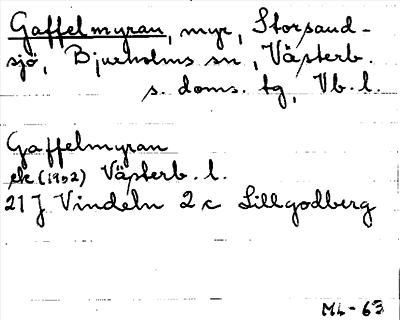 Gaffelmyran, myr, Storsand-
sjö, Bjurholms sn, Västerb.
s. doms. tg, Vb. l.
Gaffelmyran
ek (1952) Västerb. l.
21 J Vindeln 2 c Lillgodberg
ML-63